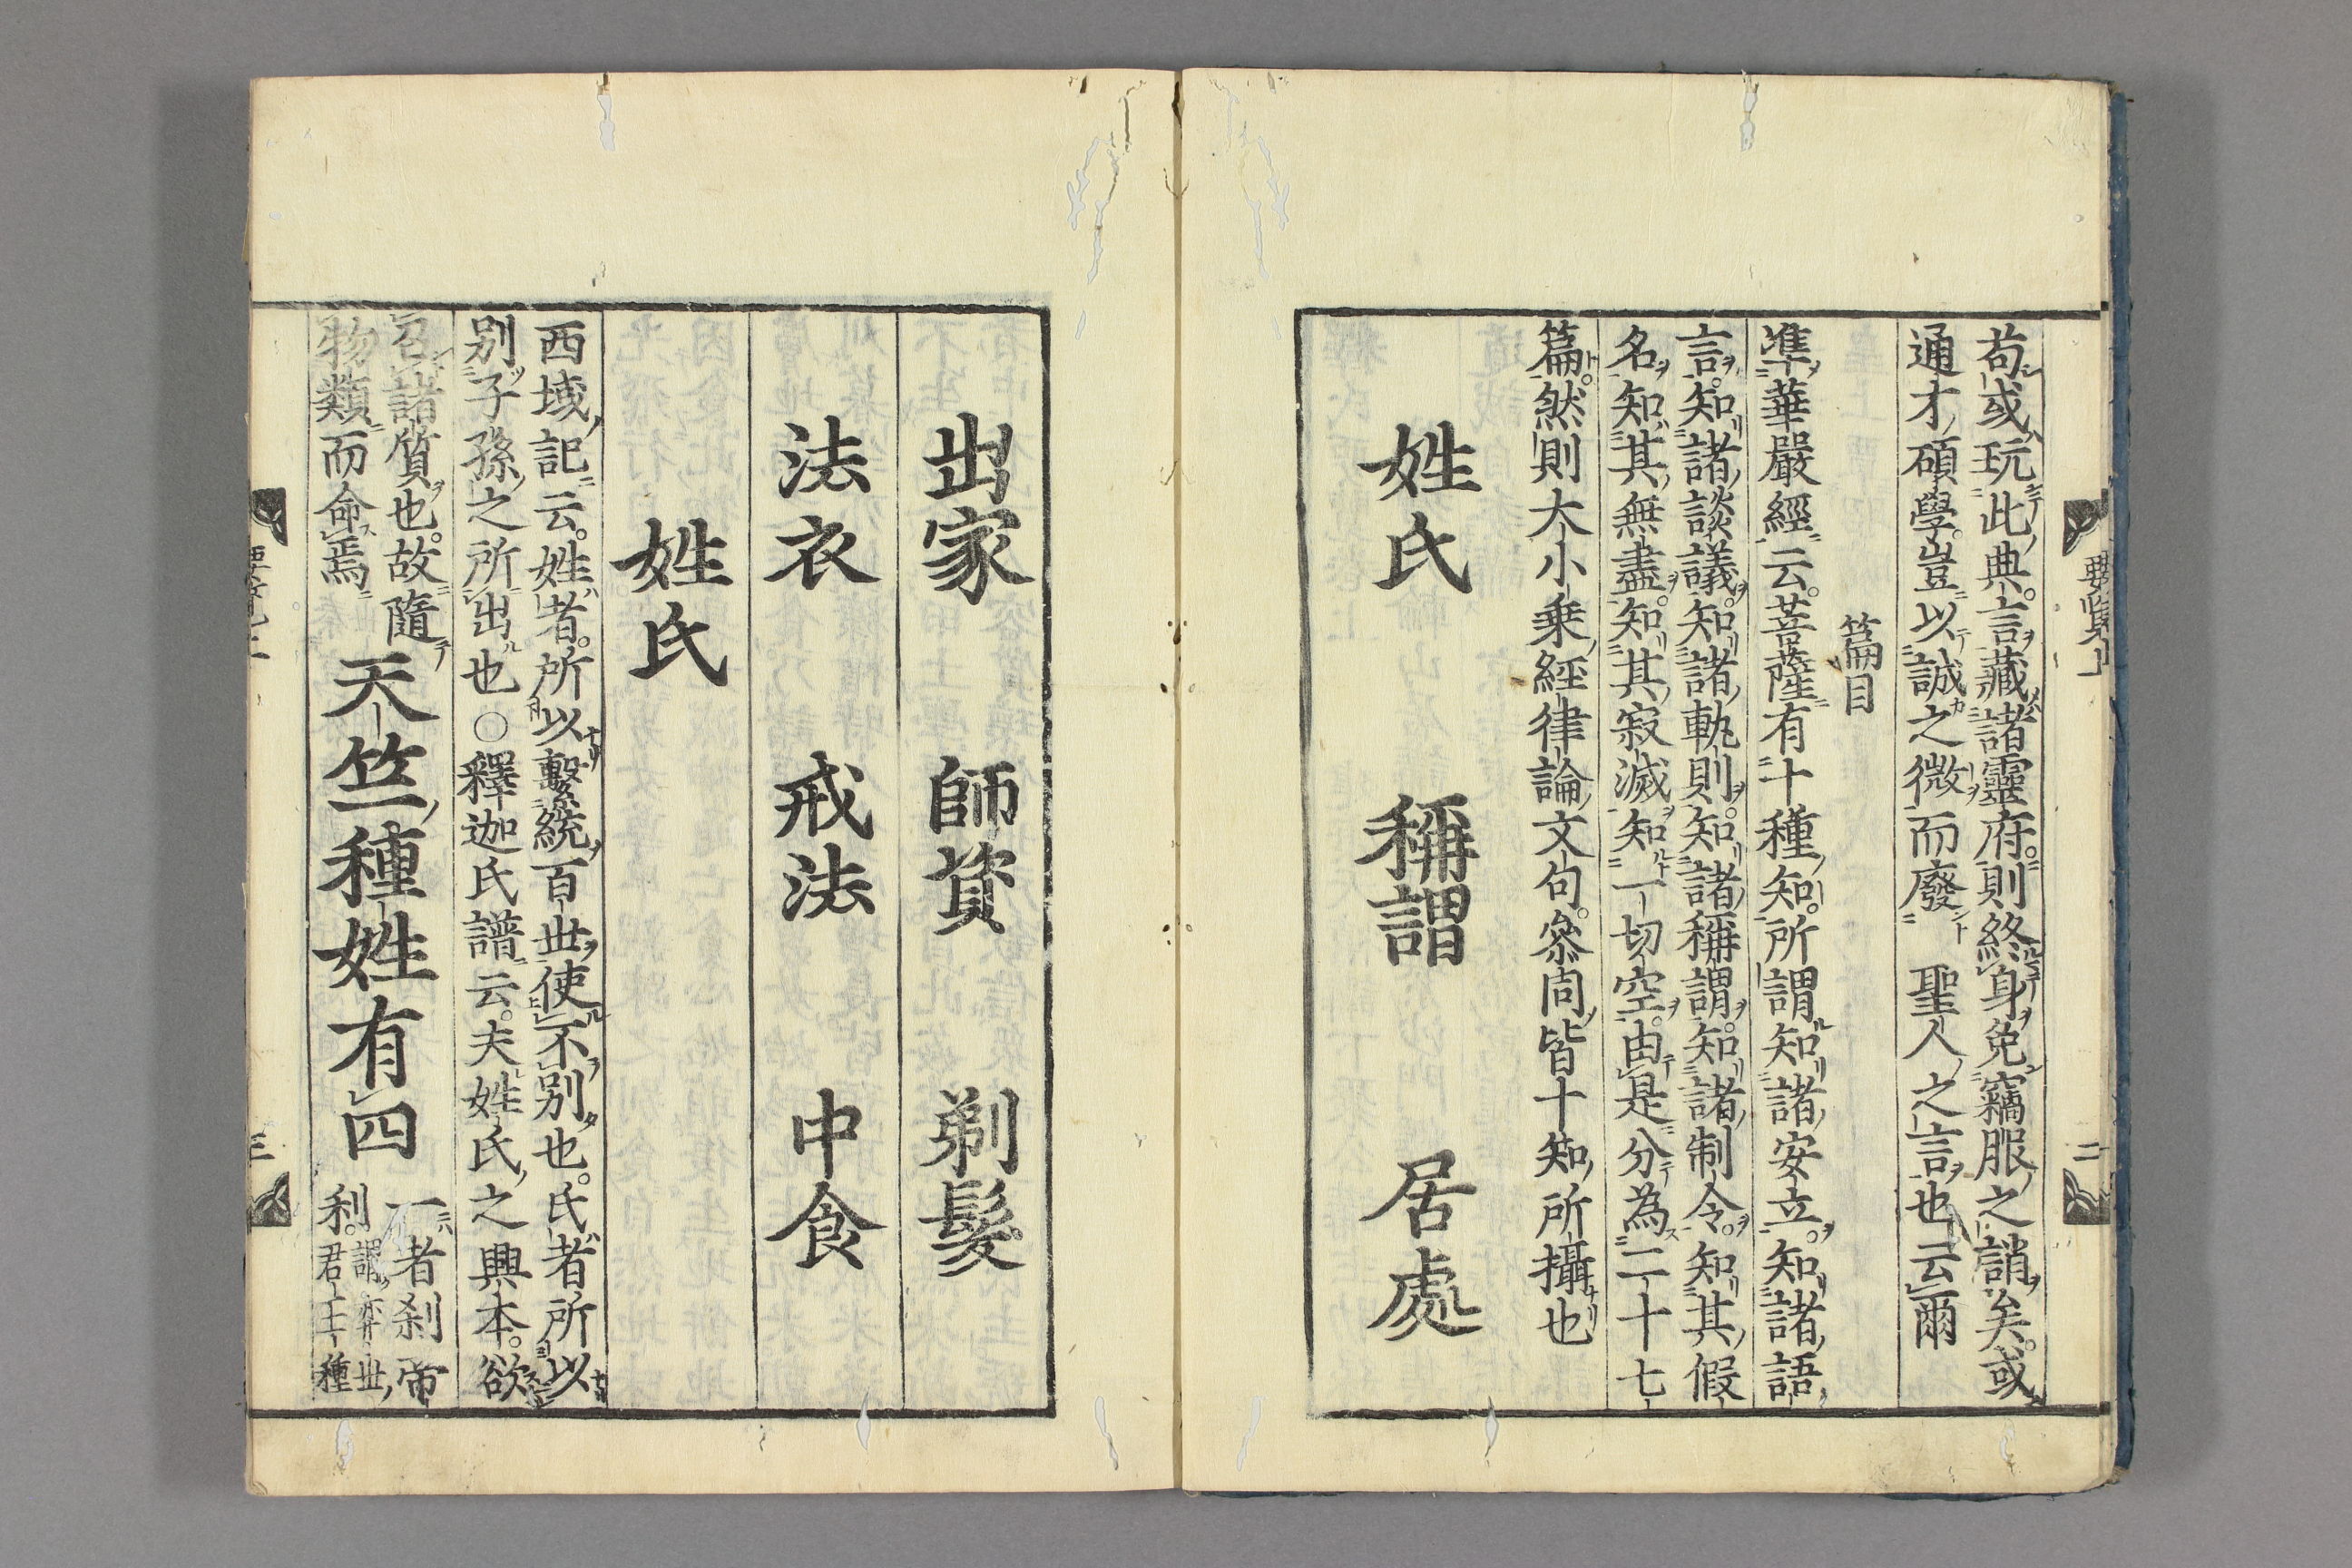 苟或玩此典言藏諸靈府。則終身免竊服之誚矣。或
通才碩學。豈以誠之微而廢 聖人之言也云爾
篇目
準華嚴經云。菩薩有十種知。所謂知諸安立。知諸語
言。知諸談議。知諸軌則。知諸稱謂。知諸制令。知其假
名。知其無盡。知其寂滅知一切空。由是分為二十七
篇。然則大小乘經律論文句。叅同皆十知所攝也
姓氏 稱謂 居處
出家 師資 剃髮
法衣 戒法 中食
姓氏
西域記云。姓者。所以繫統百世使不別也。氏者所以
別子孫之所出也○釋迦氏譜云。夫姓氏之興本。欲
召諸質也。故隨
物類而命焉
天竺種姓有四
一者剎帝
利。謂奕世君王種
要覽上
二
三